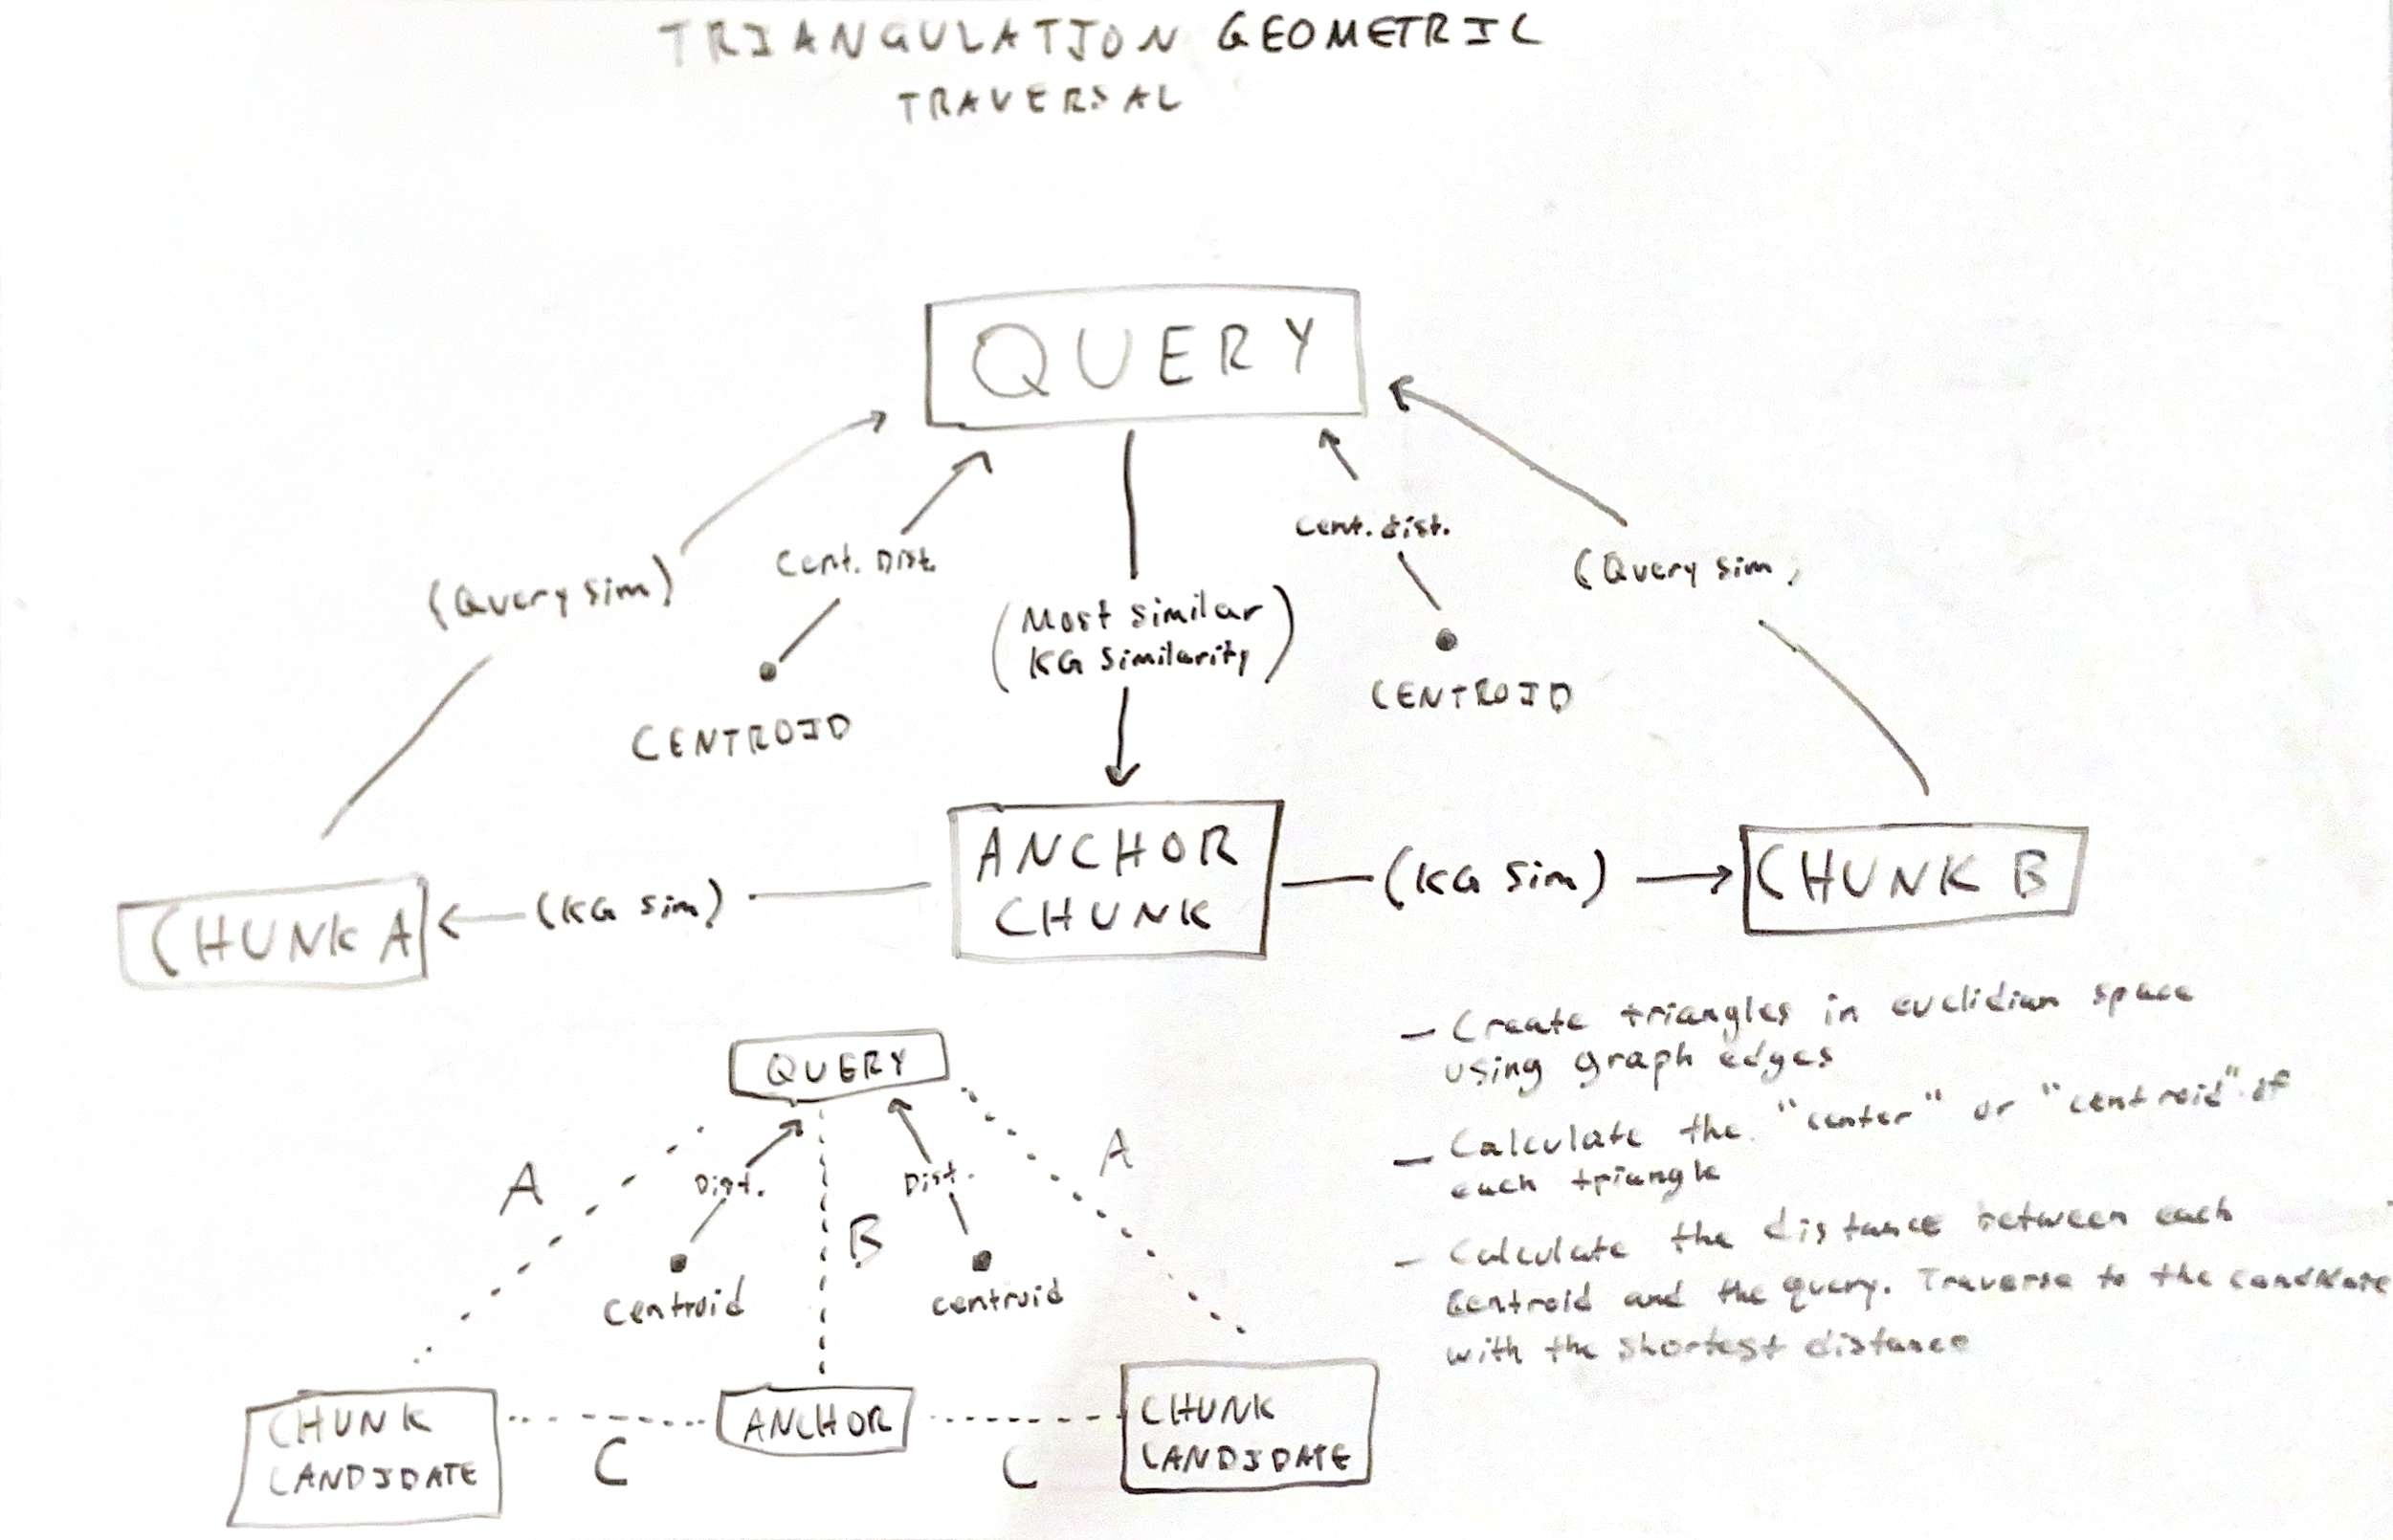 TRIANGULATION GEOMETRIC
TRAVERSAL
QUERY
(Query sim)
Cent. Dist.
(Most similar
KG similarity)
Cent. dist.
(Query sim)
CENTROID
CENTROID
CHUNK A
(KG sim)
ANCHOR
CHUNK
(KG sim)
CHUNK B
QUERY
A
Dist.
B
Dist.
A
Centroid
centroid
CHUNK
CANDIDATE
C
ANCHOR
C
CHUNK
CANDIDATE
- Create triangles in euclidian space
using graph edges
- Calculate the "center" or "centroid" of
each triangle
- Calculate the distance between each
Centroid and the query. Traverse to the candidate
with the shortest distance